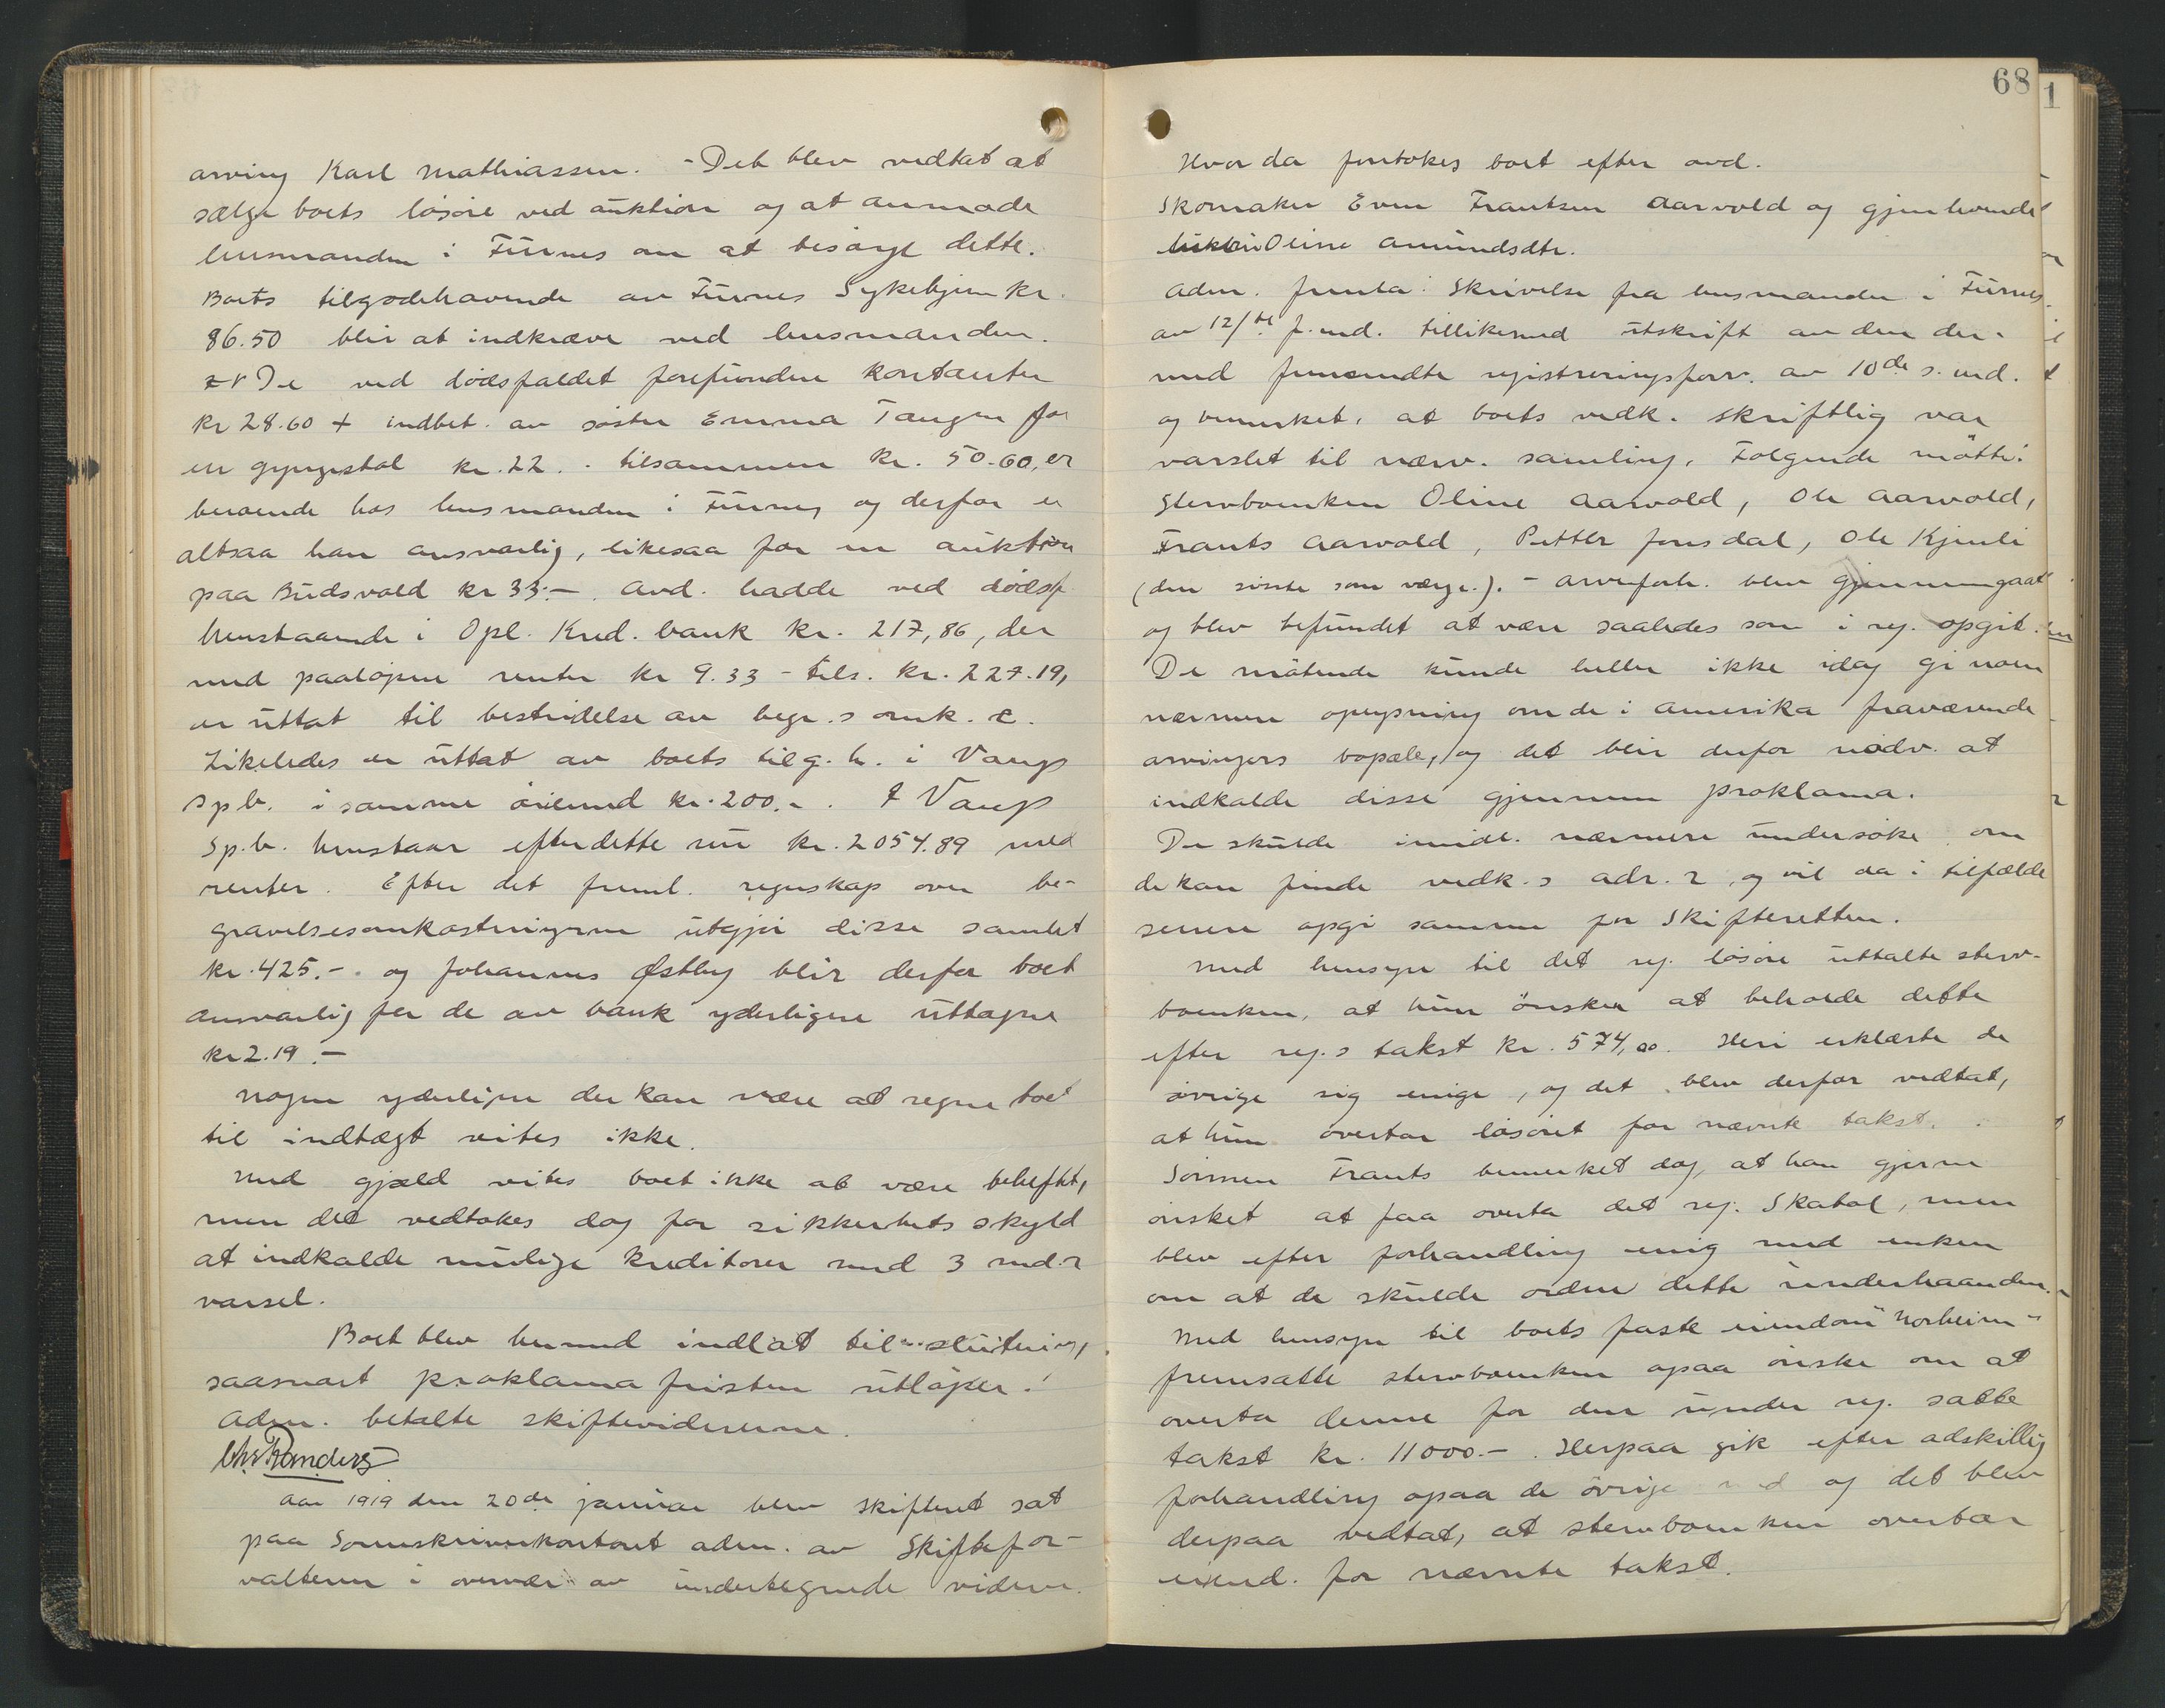 arving Karl Mathiassen. - Det blev vedtat at
sælge boets løsøre ved auktion og at anmode
lensmanden i Furnes om at besørge dette.
Boets tilgodehavende av Furnes Sykehjem kr.
86.50 blir at indkræve ved lensmanden.
De ved dødsfaldet forefundne kontanter
kr 28.60 + indbet. av søster Emma Tangen for
en gyngestol kr. 22. - tilsammen kr. 50.60, er
beroende hos lensmanden i Furnes og derfor er
altsaa han ansvarlig, likesaa for en auktion
paa Budsvold kr 33.-. Avd. hadde ved dødsf.
henstaaende i Opl. Kred. bank kr. 217,86, der
med paaløpne renter kr 9.33 - tils. kr. 227.19,
er uttat til bestridelse av begr.s omk. c.
Likeledes er uttat av boets tilg. h. i Vangs
Spb. i samme øiemed kr. 200.-. I Vangs
Sp.b. henstaar efter dette nu kr. 2054.89 med
renter. Efter det freml. regnskap over be-
gravelsesomkostningerne utgjør disse samlet
kr. 425.-. og Johannes Østby blir derfor boet
ansvarlig for de av bank yderligere uttagne
kr 2.19.-
Nogen yderligere der kan være at regne boet
til indtægt vites ikke.
Med gjæld vites boet ikke at være beheftet,
men det vedtokes dog for sikkerhets skyld
at indkalde mulige kreditorer med 3 md.r
varsel.
Boet blev hermed indlat til slutning,
saasnart proklamafristen utløper.
Adm. betalte skiftevidnerne.
Chr Randers
Aar 1919 den 20de januar blev skifteret sat
paa Sorenskriverkontoret adm. av Skiftefor-
valteren i overvær av undertegnede vidner.
68
1
Hvor da foretokes boet efter avd.
Skomaker Even Frantsen Aarvold og gjenlevende
Oline Amundsdtr.
Adm. fremla: Skrivelse fra lensmanden i Furnes
av 12/ f. md. tillikemed utskrift av den der-
med fremsendte registreringsforr. av 10de s. md.
og bemerket, at boets vedk. skriftlig var
varslet til nærv. samling. Følgende møtte:
Stervboenken Oline Aarvold, Ole Aarvold,
Frants Aarvold, Petter Jonsdal, Ole Kjenli
(den sidste som værge.). - Arveforh. blev gjennemgaat
og blev befundet at være saaledes som i reg. opgit.
De møtende kunde heller ikke idag gi noen
nærmere oplysning om de i Amerika fraværende
arvingers bopæle, og det blir derfor nødv. at
indkalde disse gjennem proklama.
De skulde imidl. nærmere undersøke om
de kan finde vedk.s adr.r og vil da i tilfælde
senere opgi samme for Skifteretten.
Med hensyn til det reg. løsøre uttalte sterv-
boenken, at hun ønsker at beholde dette
efter reg.s takst kr. 574,00. Heri erklærte de
øvrige sig enige, og det blev derfor vedtat,
at hun overtar løsøret for nævnte takst.
Sønnen Frants bemerket dog, at han gjerne
ønsket at faa overta det reg. Skatol, men
blev efter forhandling enig med enken
om at de skulde ordne dette underhaanden.
Med hensyn til boets faste eiendom "Norheim"
fremsatte stervboenken ogsaa ønske om at
overta denne for den under reg. satte
takst kr. 11000.-. Herpaa gik efter adskillig
forhandling ogsaa de øvrige med og det blev
derpaa vedtat, at stervboenken overtar
eiend. for nævnte takst.